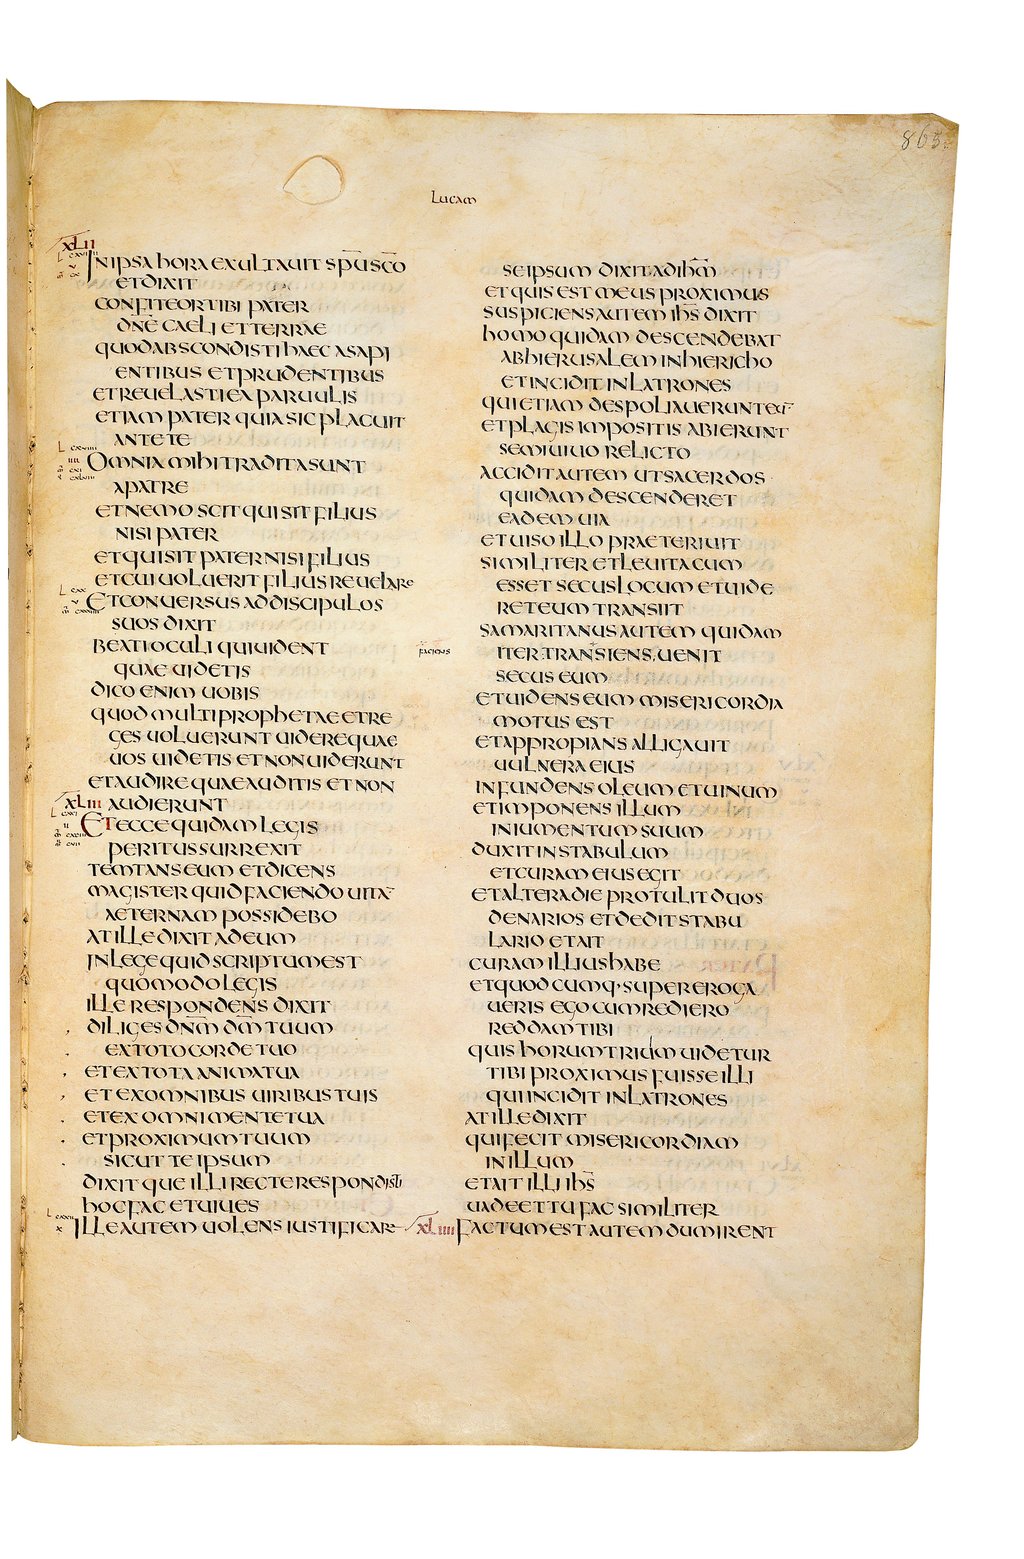 865
Lucam
XLII
IN IPSA HORA EXULTAUIT SPU SCO
ET DIXIT
CONFITEOR TIBI PATER
DNE CAELI ET TERRAE
QUOD ABSCONDISTI HAEC A SAPI
ENTIBUS ET PRUDENTIBUS
ET REUELASTI EA PARUULIS
ETIAM PATER QUIA SIC PLACUIT
ANTE TE
OMNIA MIHI TRADITA SUNT
A PATRE
ET NEMO SCIT QUI SIT FILIUS
NISI PATER
ET QUI SIT PATER NISI FILIUS
ET CUI UOLUERIT FILIUS REUELARE
ET CONUERSUS AD DISCIPULOS
SUOS DIXIT
BEATI OCULI QUI UIDENT
QUAE UIDETIS
DICO ENIM UOBIS
QUOD MULTI PROPHETAE ET RE
GES UOLUERUNT UIDERE QUAE
UOS UIDETIS ET NON UIDERUNT
ET AUDIRE QUAE AUDITIS ET NON
AUDIERUNT
XLIII
ET ECCE QUIDAM LEGIS
PERITUS SURREXIT
TEMTANS EUM ET DICENS
MAGISTER QUID FACIENDO UITA¯
AETERNAM POSSIDEBO
AT ILLE DIXIT AD EUM
IN LEGE QUID SCRIPTUM EST
QUOMODO LEGIS
ILLE RESPONDENS DIXIT
DILIGES DNM DM TUUM
EX TOTO CORDE TUO
ET EX TOTA ANIMA TUA
ET EX OMNIBUS UIRIBUS TUIS
ET EX OMNI MENTE TUA
ET PROXIMUM TUUM
SICUT TE IPSUM
DIXITQUE ILLI RECTE RESPONDISTI
HOC FAC ET UIUES
ILLE AUTEM UOLENS IUSTIFICARE
SE IPSUM DIXIT AD IHM
ET QUIS EST MEUS PROXIMUS
SUSPICIENS AUTEM IHS DIXIT
HOMO QUIDAM DESCENDEBAT
AB HIERUSALEM IN HIERICHO
ET INCIDIT IN LATRONES
QUI ETIAM DESPOLIAUERUNT EU¯
ET PLAGIS IMPOSITIS ABIERUNT
SEMIUIUO RELICTO
ACCIDIT AUTEM UT SACERDOS
QUIDAM DESCENDERET
EADEM UIA
ET UISO ILLO PRAETERIUIT
SIMILITER ET LEUITA CUM
ESSET SECUS LOCUM ET UIDE
RET EUM TRANSIIT
SAMARITANUS AUTEM QUIDAM
FACIENS
ITER TRANSIENS UENIT
SECUS EUM
ET UIDENS EUM MISERICORDIA
MOTUS EST
ET APPROPIANS ALLIGAUIT
UULNERA EIUS
INFUNDENS OLEUM ET UINUM
ET IMPONENS ILLUM
IN IUMENTUM SUUM
DUXIT IN STABULUM
ET CURAM EIUS EGIT
ET ALTERA DIE PROTULIT DUOS
DENARIOS ET DEDIT STABU
LARIO ET AIT
CURAM ILLIUS HABE
ET QUODCUMQ· SUPEREROGA
UERIS EGO CUM REDIERO
REDDAM TIBI
QUIS HORUM TRIUM UIDETUR
TIBI PROXIMUS FUISSE ILLI
QUI INCIDIT IN LATRONES
AT ILLE DIXIT
QUI FECIT MISERICORDIAM
IN ILLUM
ET AIT ILLI IHS
UADE ET TU FAC SIMILITER
XLIIII FACTUM EST AUTEM DUM IRENT